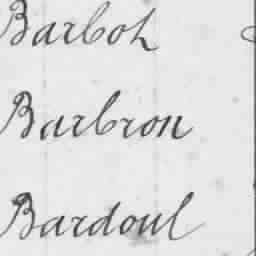 Barboh
Barbron
Bardoul